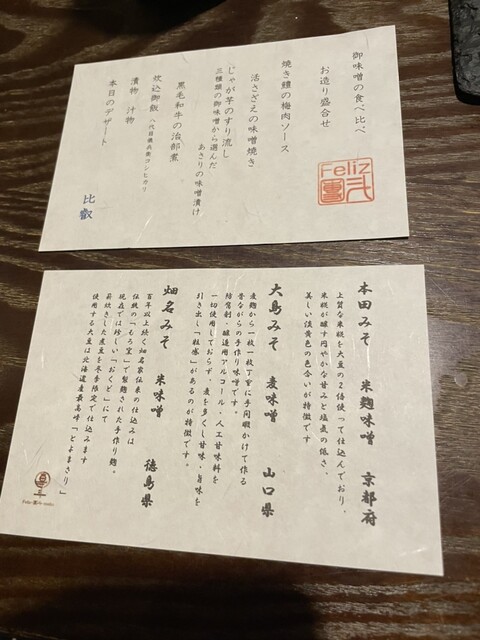 御味噌の食べ比べ
お造り盛合せ
焼き鱧の梅肉ソース
活さざえの味噌焼き
じゃが芋のすり流し
三種類の御味噌から選んだ
あさりの味噌漬け
黒毛和牛の治部煮
炊込御飯 八代目儀兵衛コシヒカリ
漬物 汁物
本日のデザート
比叡
Feliz
本田みそ 米麹味噌 京都府
上質な米糀を大豆の2倍使って仕込んでおり、
米糀が醸す円やかな甘みと塩気の低さ、
美しい淡黄色の色合いが特徴です
大島みそ 麦味噌 山口県
麦麹から一枚一枚丁寧に手間暇かけて作る
昔ながらの手作り味噌です。
防腐剤・醸造用アルコール・人工甘味料を
一切使用しておらず 麦を多くし甘味・旨味を
引き出し「粒感」があるのが特徴です。
畑名みそ 米味噌 徳島県
百年以上続く畑名家伝来の仕込みは
伝統の「もろ室」で製麹された手作り麹。
現在では珍しい「おくど」にて
薪炊きした煮豆を冬季限定で仕込みます
使用する大豆は北海道産最高峰「とよまさり」